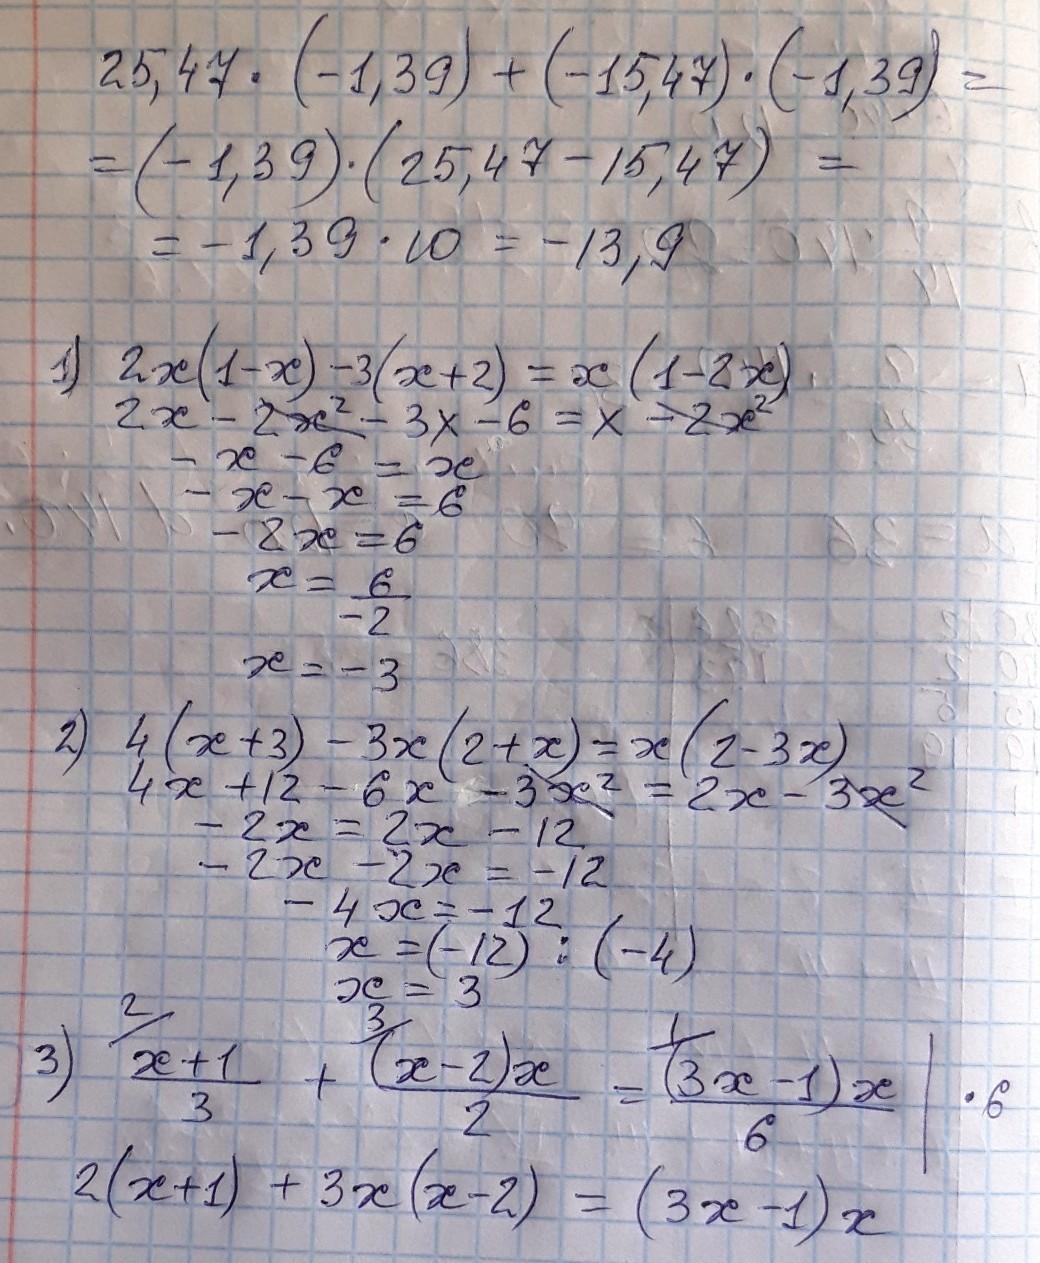 25,47 · (-1,39) + (-15,47) · (-1,39) =
= (-1,39) · (25,47 - 15,47) =
= -1,39 · 10 = -13,9
1) 2x(1-x) - 3(x+2) = x(1-2x)
2x - 2x² - 3x - 6 = x - 2x²
- x - 6 = x
- x - x = 6
- 2x = 6
x = 6/-2
x = -3
2) 4(x+3) - 3x(2+x) = x(2-3x)
4x + 12 - 6x - 3x² = 2x - 3x²
- 2x = 2x - 12
- 2x - 2x = -12
- 4x = -12
x = (-12) : (-4)
x = 3
3) ²/ (x+1)/3 + ³/ (x-2)x/2 = ¹/ (3x-1)x/6 | · 6
2(x+1) + 3x(x-2) = (3x-1)x